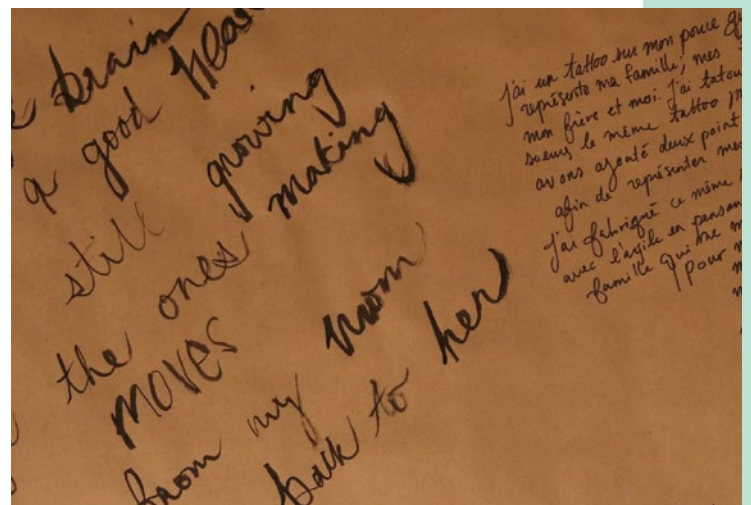 brain
a good
still growing
the ones making
MOVES
from my mom
back to her
j'ai un tattoo sur mon pouce
représente ma famille, mes
mon frère et moi. j'ai
soeurs le même tattoo
avons ajouté deux point
afin de représenter
j'ai fabriqué ce même
avec l'argile en
famille qui me
pour